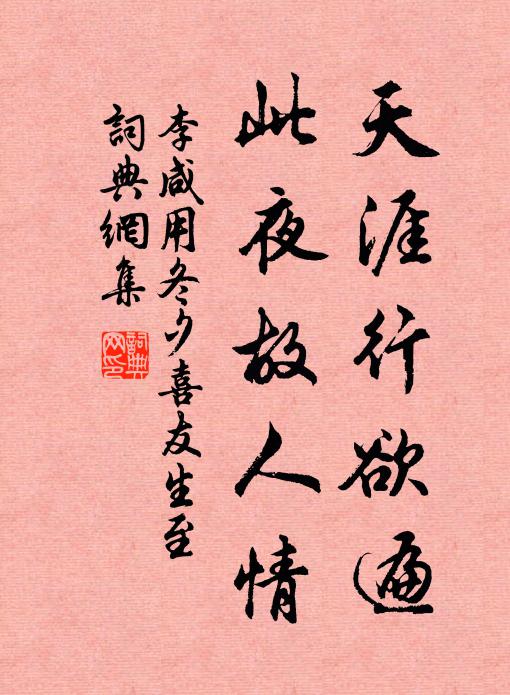 天涯行欲遍
此夜故人情
李咸用冬夕喜友生至
詞典網集
詞典网印